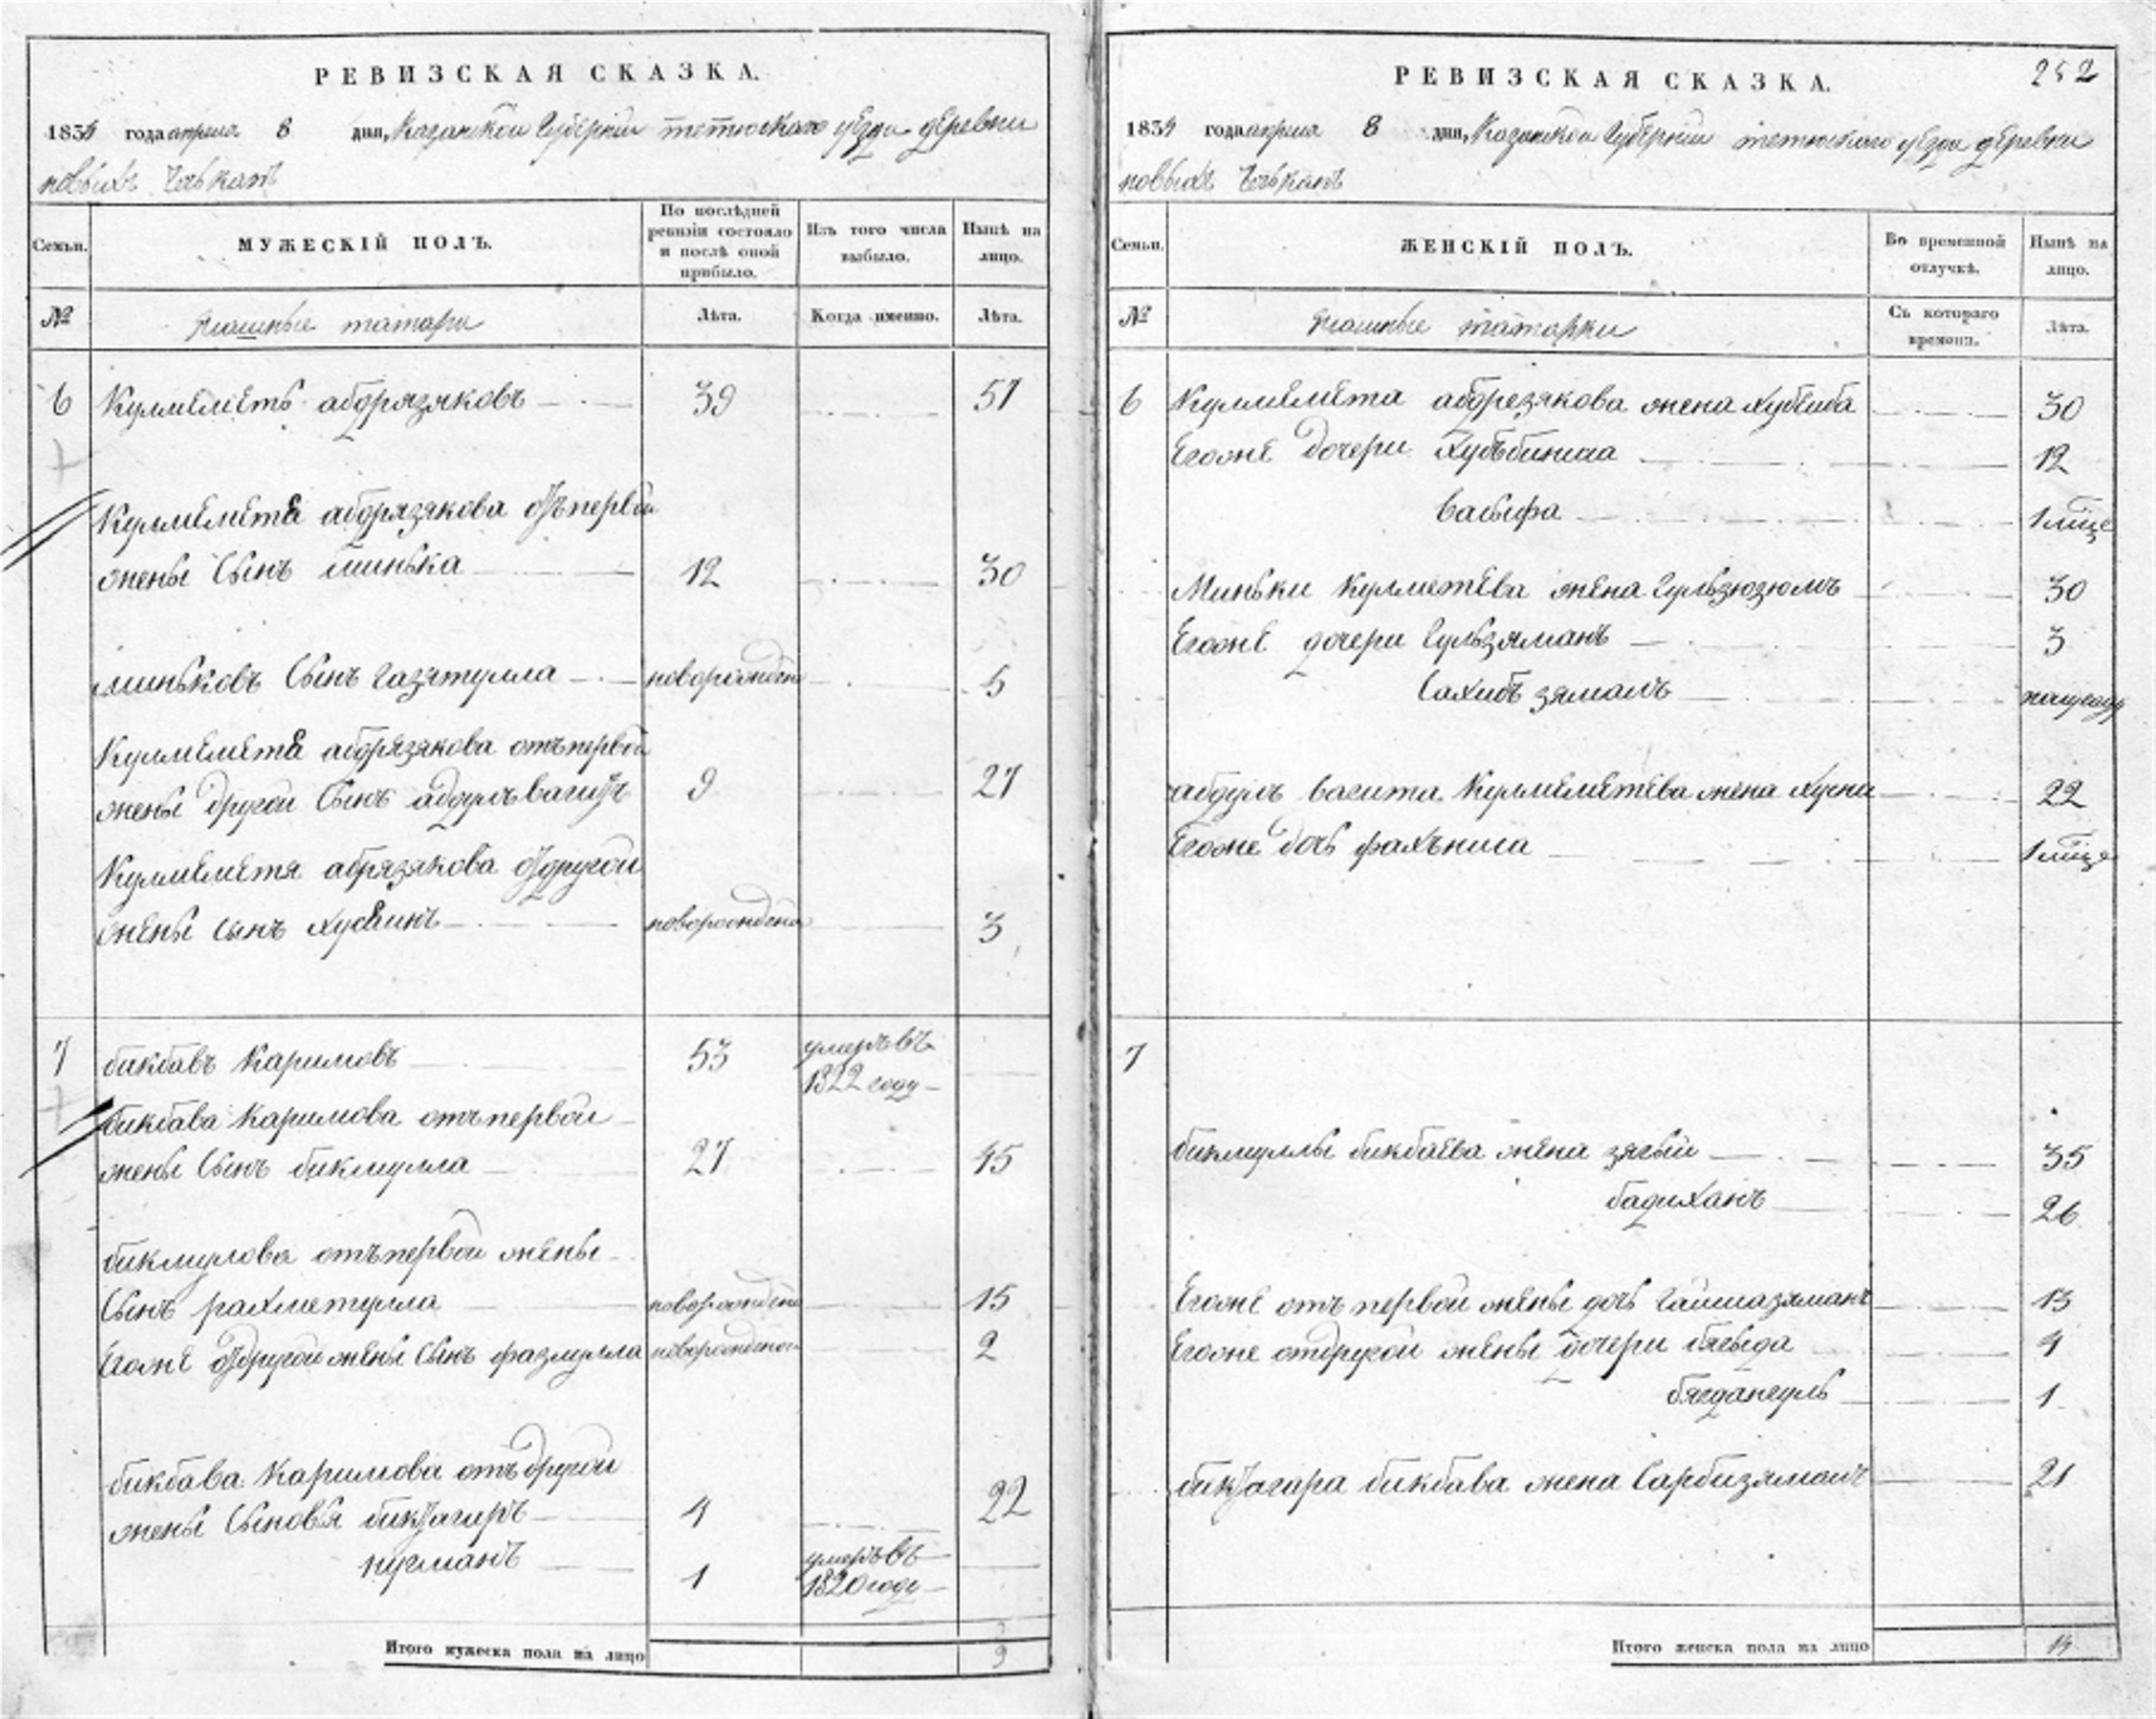 РЕВИЗСКАЯ СКАЗКА.
1834 года апреля 8 дня, Казанской Губернии тетюскаго уезда деревни
новыхъ
Семьи.
МУЖЕСКІЙ ПОЛЪ.
По послѣдней ревизіи состояло и послѣ оной прибыло.
Изъ того числа выбыло.
Нынѣ на лицо.
№
татары
Лѣта.
Когда именно.
Лѣта.
6 Кулмеметь абдрязяковъ 39 51
Кулмемета абдрязякова отъ первой
жены Сынъ минька 12 30
миньковъ Сынъ газятулла новорожденъ 5
Кулмемета абдрязякова отъ первой
жены другой Сынъ абдулъвагитъ 9 27
Кулмеметя абрязякова от другой
жены сынъ хусеинъ новорожденъ 3
7 бикбавъ Каримовъ 53 умеръ въ
1822 году
бикбава Каримова отъ первой
жены Сынъ бикмулла 27 45
бикмулова отъ первой жены
Сынъ рахметулла новорожденъ 15
Егоже от другой жены Сынъ фазмулла новорожденъ 2
бикбава Каримова отъ другой
жены Сыновья 4 22
нугманъ 1 умеръ въ
1820 году
Итого мужеска пола на лицо 9
РЕВИЗСКАЯ СКАЗКА. 252
1834 года апреля 8 дня, Казанской Губернии тетюскаго уезда деревни
новыхъ
Семьи.
ЖЕНСКІЙ ПОЛЪ.
Во временной отлучкѣ.
Нынѣ на лицо.
№
татарки
Съ котораго времени.
Лѣта.
6 Кулмемета абдрезякова жена Хубеиба 30
Егоже дочери Хубъбиниса 12
Васифа 1 мце
Миньки Кулметева жена Гульзюзюмъ 30
Егоже дочери Гульзяманъ 3
Сахибъ зямалъ полугоду
абдулъ вагита Кулмеметева жена Хусни 22
Егоже дочь фахъниса 1 мце
7
бикмуллы бикбаева жена 35
бадиханъ 26
Егоже отъ первой жены дочь 13
Егоже отдругой жены дочери 4
бягдангуль 1
бикбава жена Сарбизямалъ 21
Итого женска пола на лицо 14